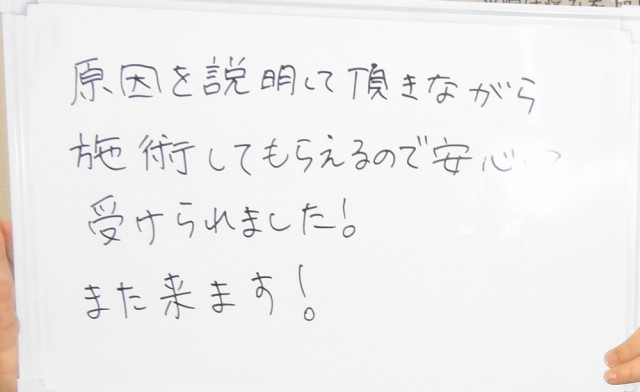 原因を説明して頂きながら
施術してもらえるので安心
受けられました!
また来ます!